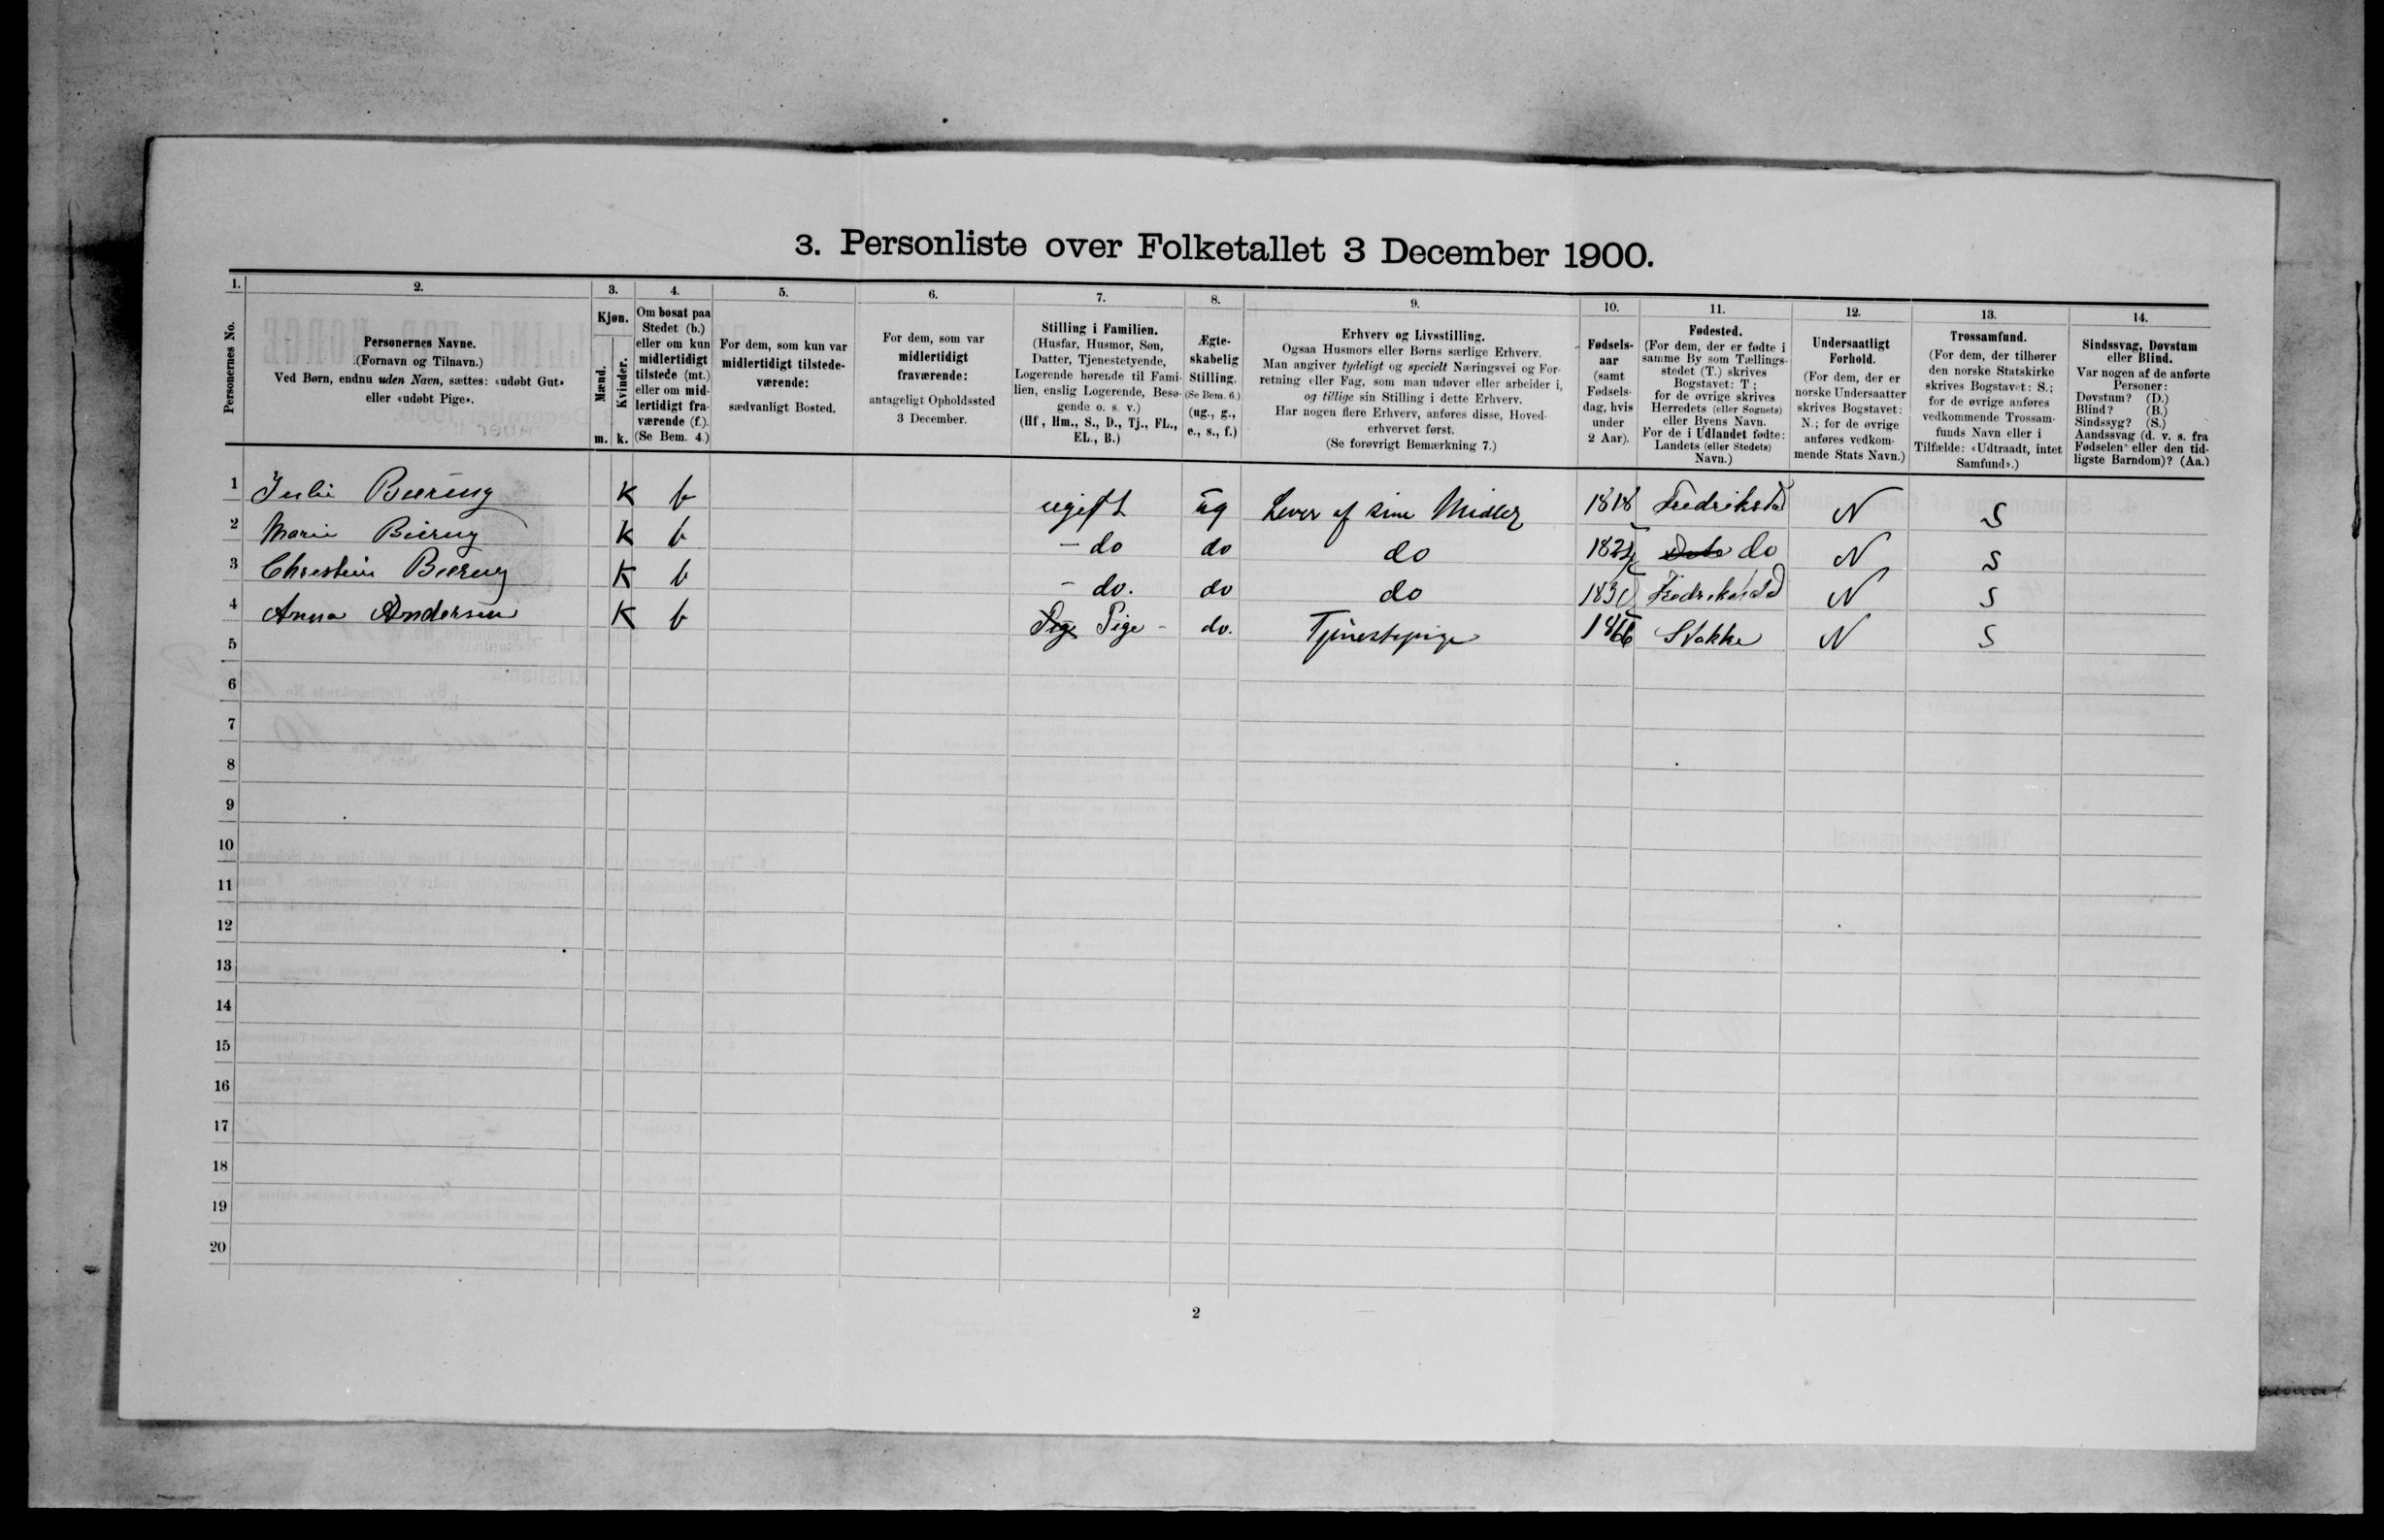 3. Personliste over Folketallet 3 December 1900.
1. 2. 3. 4. 5. 6. 7. 8. 9. 10. 11. 12. 13. 14.
Personernes No.
Personernes Navne.
(Fornavn og Tilnavn.)
Ved Børn, endnu uden Navn, sættes: «udøbt Gut»
eller «udøbt Pige».
Kjøn.
Mænd.
Kvinder.
m. k.
Om bosat paa
Stedet (b.)
eller om kun
midlertidigt
tilstede (mt.)
eller om mid-
lertidigt fra-
værende (f.).
(Se Bem. 4.)
For dem, som kun var
midlertidigt tilstede-
værende:
sædvanligt Bosted.
For dem, som var
midlertidigt
fraværende:
antageligt Opholdssted
3 December.
Stilling i Familien.
(Husfar, Husmor, Søn,
Datter, Tjenestetyende,
Logerende hørende til Fami-
lien, enslig Logerende, Besø-
gende o. s. v.)
(Hf., Hm., S., D., Tj., FL.,
EL., B.)
Ægte-
skabelig
Stilling.
(Se Bem. 6.)
(ug., g.,
e., s., f.)
Erhverv og Livsstilling.
Ogsaa Husmors eller Børns særlige Erhverv.
Man angiver tydeligt og specielt Næringsvei og For-
retning eller Fag, som man udøver eller arbeider i,
og tillige sin Stilling i dette Erhverv.
Har nogen flere Erhverv, anføres disse, Hoved-
erhvervet først.
(Se forøvrigt Bemærkning 7.)
Fødsels-
aar
(samt
Fødsels-
dag, hvis
under
2 Aar).
Fødested.
(For dem, der er fødte i
samme By som Tællings-
stedet (T.) skrives
Bogstavet: T.;
for de øvrige skrives
Herredets (eller Sognets)
eller Byens Navn.
For de i Udlandet fødte:
Landets (eller Stedets)
Navn.)
Undersaatligt
Forhold.
(For dem, der er
norske Undersaatter
skrives Bogstavet:
N.; for de øvrige
anføres vedkom-
mende Stats Navn.)
Trossamfund.
(For dem, der tilhører
den norske Statskirke
skrives Bogstavet: S.;
for de øvrige anføres
vedkommende Trossam-
funds Navn eller i
Tilfælde: «Udtraadt, intet
Samfund».)
Sindssvag, Døvstum
eller Blind.
Var nogen af de anførte
Personer:
Døvstum? (D.)
Blind? (B.)
Sindssyg? (S.)
Aandssvag (d. v. s. fra
Fødselen eller den tid-
ligste Barndom)? (Aa.)
1 Julie K b ugift ug Lever af sine Midler 1818 Fredrikstad N S
2 Marie K b - do do do do N S
3 K b - do. do do Fredrikstad N S
4 Anna Andersen K b Pige Pige - do. Tjenestepige 1866 Stokke N S
5
6
7
8
9
10
11
12
13
14
15
16
17
18
19
20
2